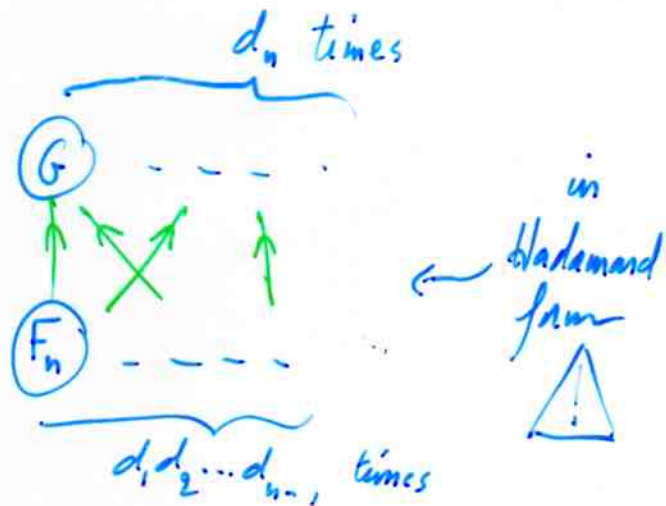 dₙ times
G - - - -
in
Hadamard
form
!
Fₙ - - - -
d₁d₂...dₙ₋₁ times